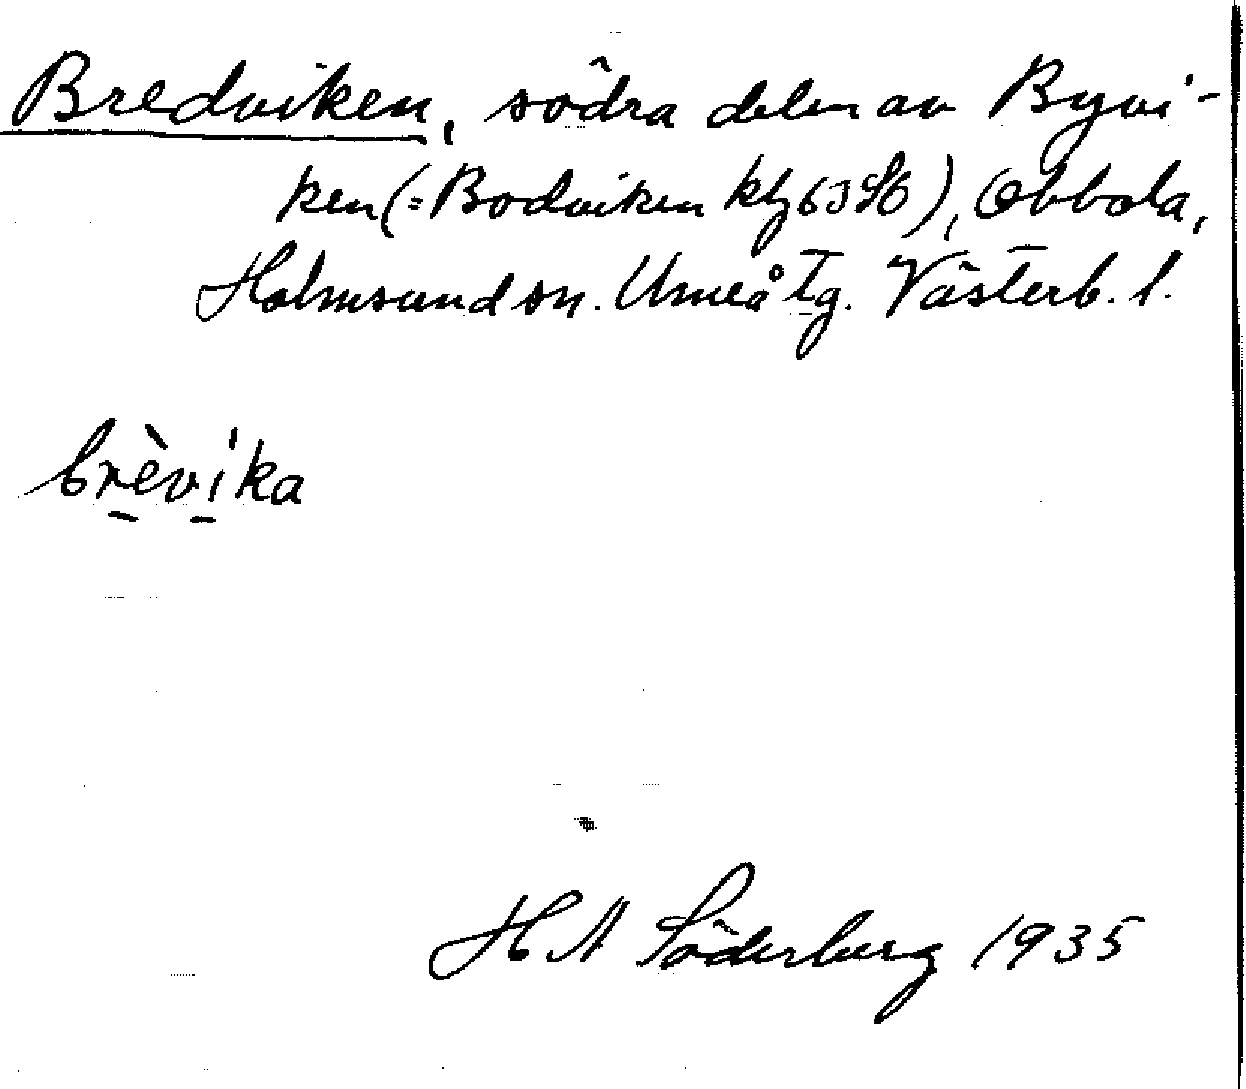 Bredviken, södra delen av Byvi-
ken (= Bodviken kbl 63 SO), Obbola,
Holmsund sn. Umeå Tg. Västerb. l.
brèvika
H A Söderberg 1935